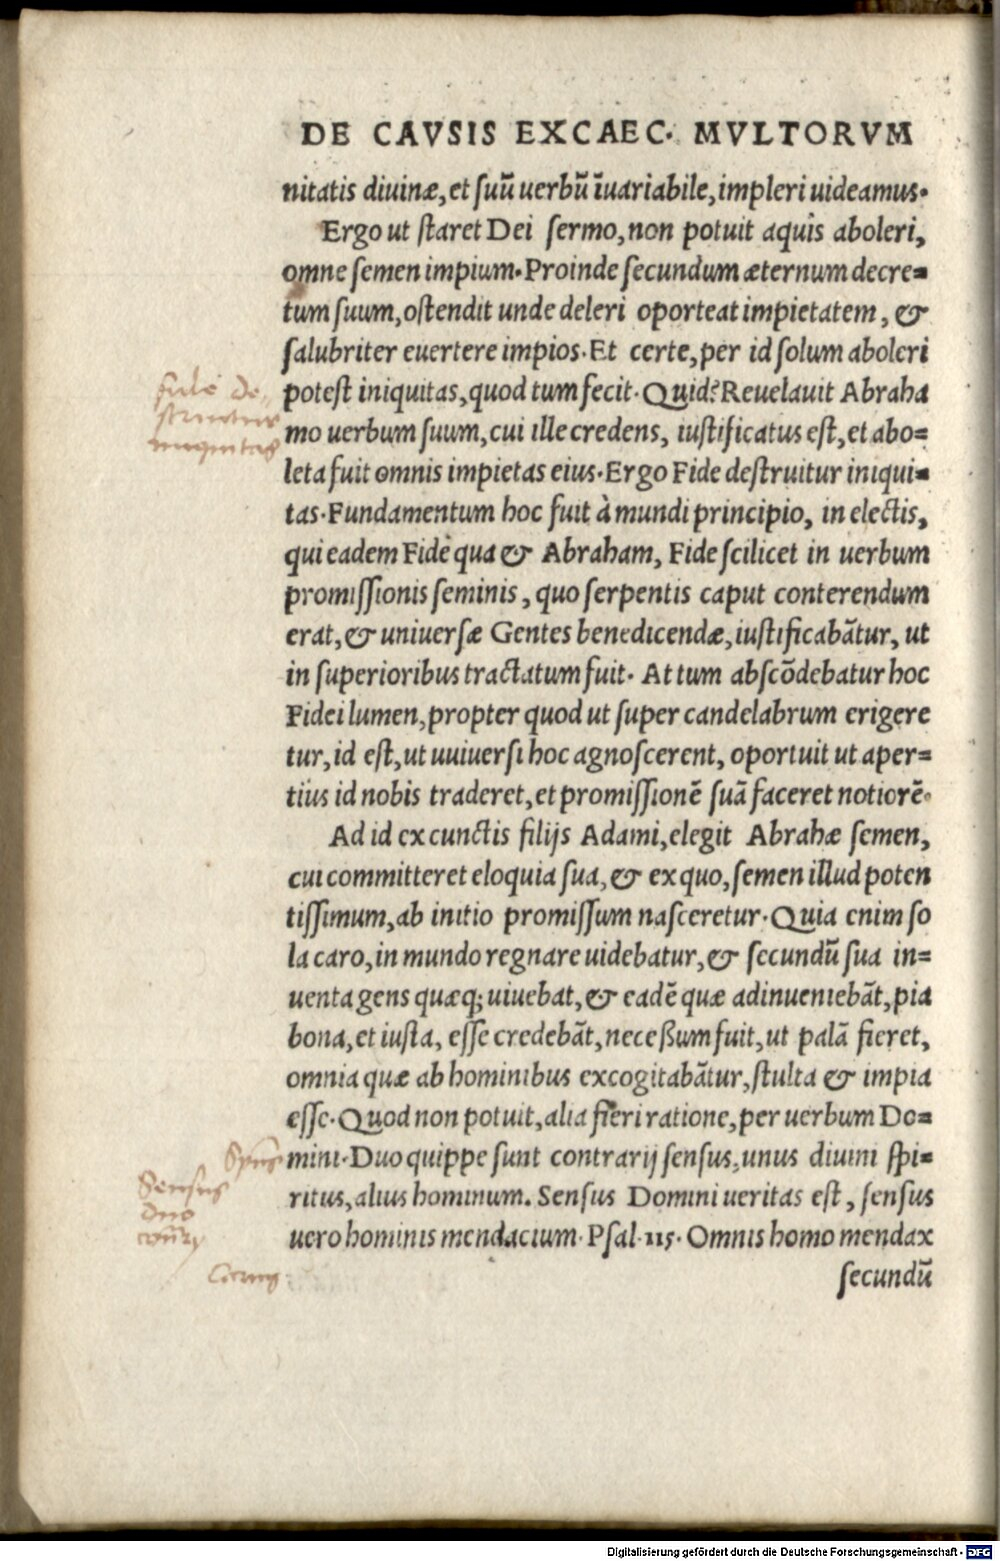 DE CAVSIS EXCAEC. MVLTORVM
nitatis diuinæ, et suũ uerbũ ĩuariabile, impleri uideamus.
Ergo ut staret Dei sermo, non potuit aquis aboleri,
omne semen impium. Proinde secundum æternum decre=
tum suum, ostendit unde deleri oporteat impietatem, &
salubriter euertere impios. Et certe, per id solum aboleri
potest iniquitas, quod tum fecit. Quid? Reuelauit Abraha
mo uerbum suum, cui ille credens, iustificatus est, et abo=
leta fuit omnis impietas eius. Ergo Fide destruitur iniqui=
tas. Fundamentum hoc fuit à mundi principio, in electis,
qui eadem Fide qua & Abraham, Fide scilicet in uerbum
promissionis seminis, quo serpentis caput conterendum
erat, & uniuersæ Gentes benedicendæ, iustificabãtur, ut
in superioribus tractatum fuit. At tum abscõdebatur hoc
Fidei lumen, propter quod ut super candelabrum erigere
tur, id est, ut uuiuersi hoc agnoscerent, oportuit ut aper=
tius id nobis traderet, et promissionẽ suã faceret notiorẽ.
Ad id ex cunctis filijs Adami, elegit Abrahæ semen,
cui committeret eloquia sua, & ex quo, semen illud poten
tissimum, ab initio promissum nasceretur. Quia enim so
la caro, in mundo regnare uidebatur, & secundũ sua in=
uenta gens quæq; uiuebat, & eadẽ quæ adinueniebãt, pia
bona, et iusta, esse credebãt, neceßum fuit, ut palã fieret,
omnia quæ ab hominibus excogitabãtur, stulta & impia
esse. Quod non potuit, alia fieri ratione, per uerbum Do=
mini. Duo quippe sunt contrarij sensus, unus diuini spi=
ritus, alius hominum. Sensus Domini ueritas est, sensus
uero hominis mendacium. Psal. 115. Omnis homo mendax
secundũ
fide de-
struitur
iniquitas
Sensus
duo
Digitalisierung gefördert durch die Deutsche Forschungsgemeinschaft - DFG